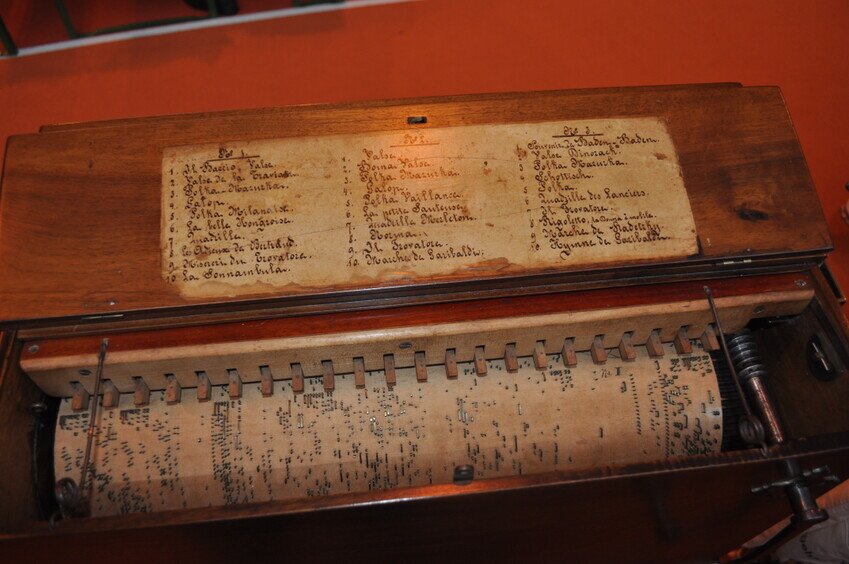 No 1.
1. Il Baccio, Valse.
2. Valse de la Traviata.
3. Polka Mazurka.
4. Galop.
5. Polka Milanaise.
6. La belle Hongroise.
7. Quadrille.
8. Les Adieux de Bertrand.
9. Miserere du Trovatore.
10 La Sonnambula.
No 2.
1. Valse.
2. Prima Valse.
3. Polka Mazurka.
4. Galop.
5. Polka Vaillance.
6. La petite Santeuse.
7. Quadrille
8. Norma.
9. Il Trovatore.
10. Marche de Garibaldi.
No 3.
1. Souvenir de Baden-Baden.
2. Valse Dinorach.
3. Polka Mazurka.
4. Schottisch.
5. Polka.
6. Quadrille des Lanciers.
7. Il Trovatore.
8 Rigoletto,
9 Marche de Radetzky.
10. Hymne de Garibaldi.